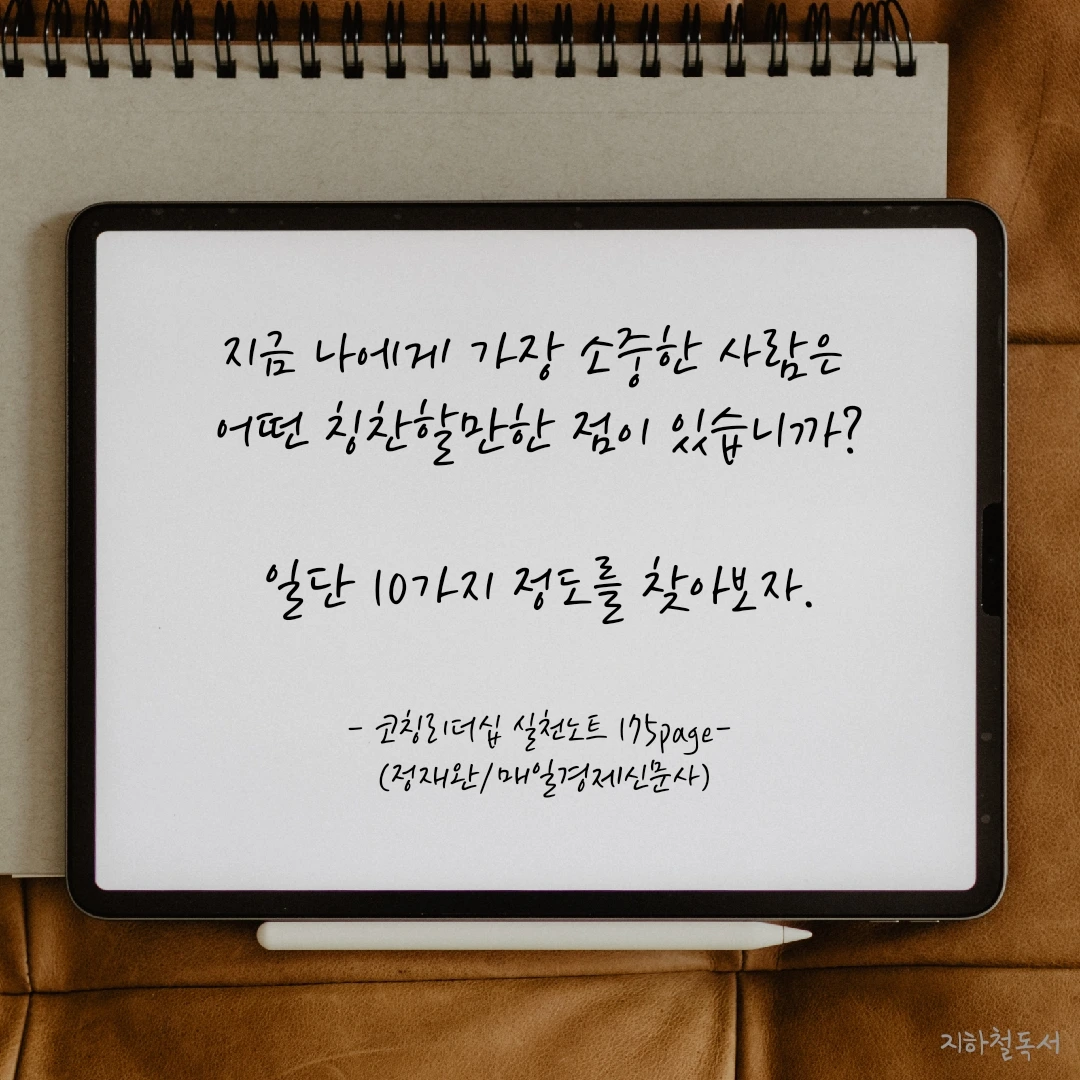 지금 나에게 가장 소중한 사람은
어떤 칭찬할만한 점이 있습니까?
일단 10가지 정도를 찾아보자.
- 코칭리더십 실천노트 175page-
(정재완/매일경제신문사)
지하철독서